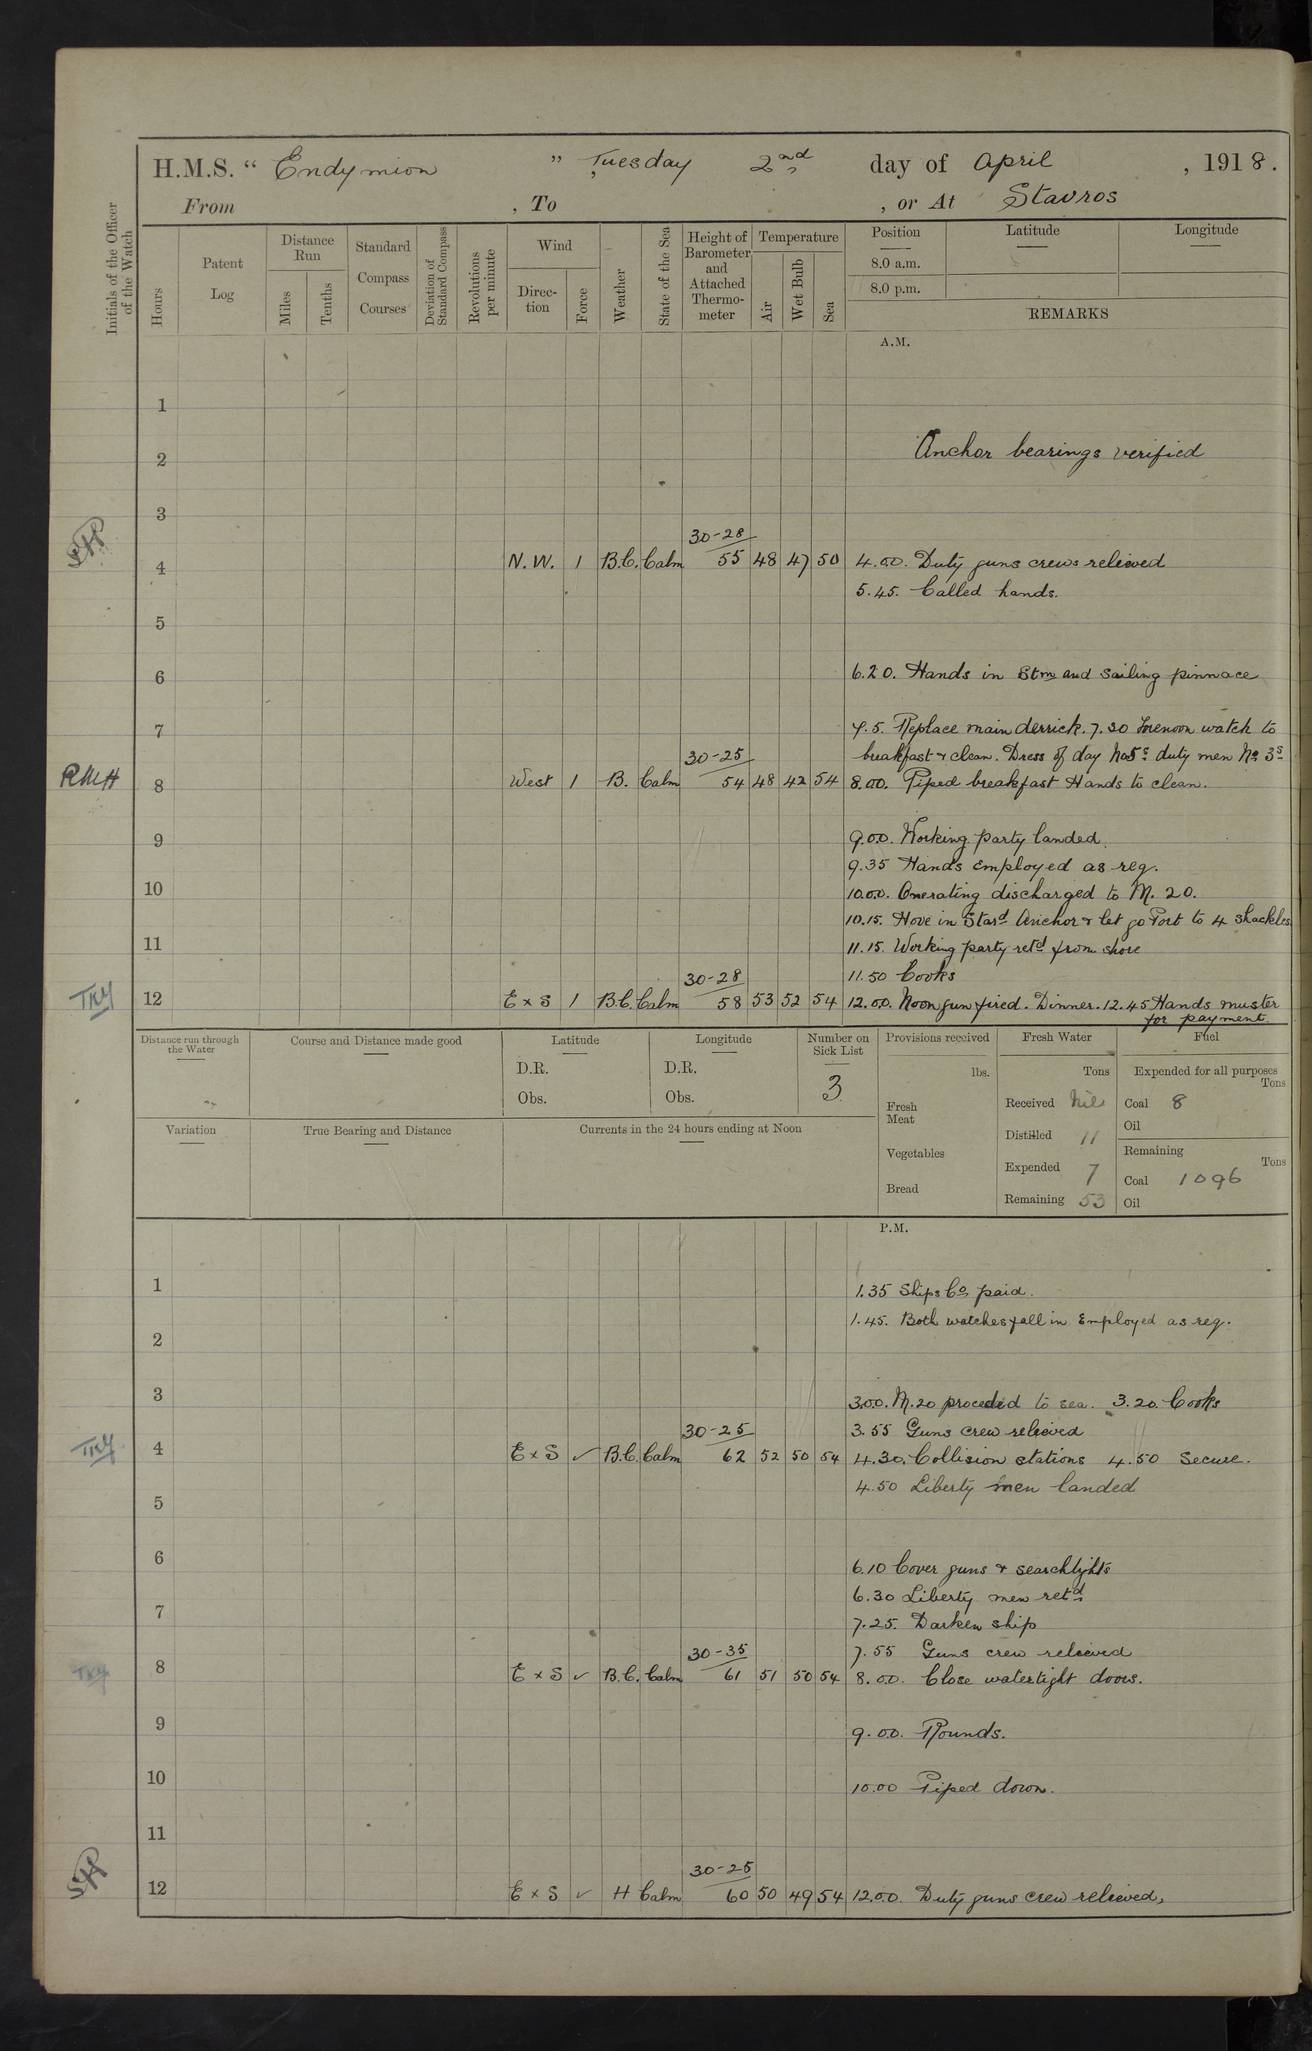 H.M.S. “ Endymion ” , Tuesday 2nd day of April , 1918.
From , To , or At Stavros
Initials of the Officer of the Watch
Hours
Patent Log
Distance Run
Miles
Tenths
Standard Compass Courses
Deviation of Standard Compass
Revolutions per minute
Wind
Direc-tion
Force
Weather
State of the Sea
Height of Barometer and Attached Thermo-meter
Temperature
Air
Wet Bulb
Sea
Position
Latitude
Longitude
8.0 a.m.
8.0 p.m.
REMARKS
A.M.
1
2 Anchor bearings verified
3
30-28
4 N.W. 1 B.C. Calm 55 48 47 50 4.00. Duty guns crews relieved
5.45. Called hands.
5
6 6.20. Hands in Stm and Sailing pinnace
7 7.5. Replace main derrick. 7.30 Forenoon watch to
30-25 breakfast & clean. Dress of day No5s duty men No 3s
RMH 8 West 1 B. Calm 54 48 42 54 8.00. Piped breakfast Hands to clean.
9 9.00. Working party landed.
9.35 Hands Employed as req.
10 10.00. Onerating discharged to M. 20.
10.15. Hove in Stard Anchor & let go Port to 4 shackles
11 11.15. Working party retd from shore
30-28 11.50 Cooks
TKY 12 E x S 1 B.C. Calm 58 53 52 54 12.00. Noon gun fired. Dinner. 12.45 Hands muster
for payment.
Distance run through the Water
Course and Distance made good
Latitude
D.R.
Obs.
Longitude
D.R.
Obs.
Number on Sick List
3
Provisions received
lbs.
Fresh Meat
Vegetables
Bread
Fresh Water
Tons
Received Nil
Distilled 11
Expended 7
Remaining 53
Fuel
Expended for all purposes
Tons
Coal 8
Oil
Remaining
Tons
Coal 1096
Oil
Variation
True Bearing and Distance
Currents in the 24 hours ending at Noon
P.M.
1 1.35 Ships Co. paid.
1.45. Both watches fall in Employed as req.
2
3 3.00. M.20 proceded to sea. 3.20. Cooks
30-25 3.55 Guns crew relieved
TKY 4 E x S ✓ B.C. Calm 62 52 50 54 4.30. Collision stations 4.50 Secure.
4.50 Liberty men landed
5
6 6.10 Cover guns & searchlights
6.30 Liberty men retd
7 7.25. Darken ship
30-35 7.55 Guns crew relieved
TKY 8 E x S ✓ B.C. Calm 61 51 50 54 8.00. Close watertight doors.
9 9.00. Rounds.
10 10.00 Piped down.
11
30-25
12 E x S ✓ H Calm 60 50 49 54 12.00. Duty guns crew relieved,